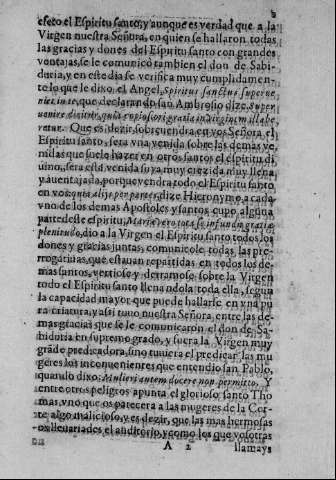 efeto el Espiritu santo, y aunque es verdad que a la
Virgen nuestra Señora, en quien se hallaron todas
las gracias y dones del Espiritu santo con grandes
ventajas, se le comunicò tambien el don de Sabi-
duria, y en este dia se verifica muy cumplidamen-
te lo que le dixo el Angel, Spiritus sanctus superue-
niet in te, que declarando san Ambrosio dize, Super
uenire dixit, quia copiosiori gratia in virginem illabe
retur. Que es dezir, sobreuendra en vos Señora el
Espiritu santo, sera vna venida sobre las demas ve
nidas que suele hazer en otros santos el espiritu di
uino, sera esta venida suya muy crezida muy llena,
y auentajada, porque vendra todo el Espiritu santo
en vos, quia alijs per partes, dize Hieronymo, a cada
vno de los demas Apostoles y santos, cupo alguna
parte deste espiritu, Mariæ vero tota se infundit gratiæ
plenitudo, dio a la Virgen el Espiritu santo todos los
dones y gracias juntas, comunicole todas las pre-
rrogatiuas, que estauan repartidas en todos los de-
mas santos, vertiose y derramose sobre la Virgen
todo el Espiritu santo llenandola toda ella, segun
la capacidad mayor que puede hallarse en vna pu
ra criatura, y assi tuuo nuestra Señora, entre las de-
mas gracias que se le comunicaron el don de Sa-
biduria en supremo grado, y fuera la Virgen muy
grãde predicadora, sino tuuiera el predicar las mu
geres los inconuenientes que entendio san Pablo,
quando dixo, Mulieri autem docere non permitto, Y
entre otros peligros apunta el glorioso santo Tho
mas, vno que os parecera a las mugeres de la Cor-
te algo malicioso, y es dezir, que las mas hermosas
os lleuariades el auditorio, y como los que vosotras
A 2 llamays